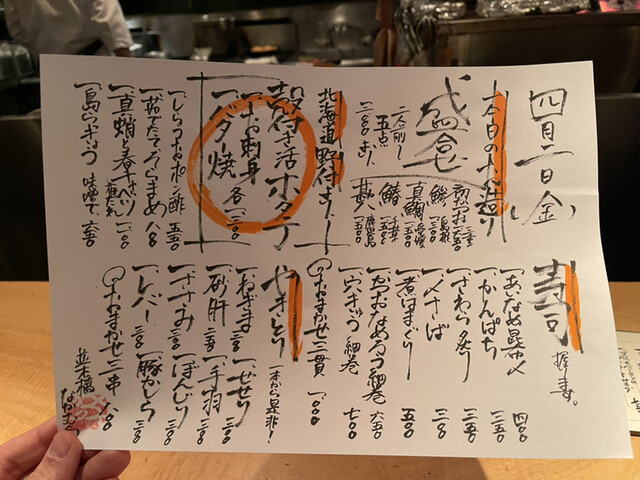 四月二日(金)
本日のお造り
盛合せ
二人前〜
五点
二三〇〇より
鰆 千葉
真鯛 愛媛
北海道野付より!
殻付き活ホタテ
一、お刺身
一、バター焼
各一、二〇〇
一、しらうおポン酢 五五〇
一、茹でたてそらまめ 八八〇
一、直蛸と春キャベツ
一、島らっきょう 味噌で 六五〇
寿司 握り一寿。
一、あいなめ昆布〆 四〇〇
一、かんぱち 三五〇
一、さわら炙り 三五〇
一、〆さば 三〇〇
一、煮はまぐり 五〇〇
一、おおなめろう細巻 六五〇
一、穴きゅう細巻 七〇〇
○おまかせ三貫 一、〇〇〇
やきとり 一本から是非!
一、ねぎま 三〇〇
一、せせり 三〇〇
一、砂肝 三〇〇
一、手羽 三〇〇
一、ささみ 三〇〇
一、ぼんじり 三〇〇
一、レバー 三〇〇
一、豚かしら 三〇〇
○おまかせ三串 八〇〇
並木橋
なかむら